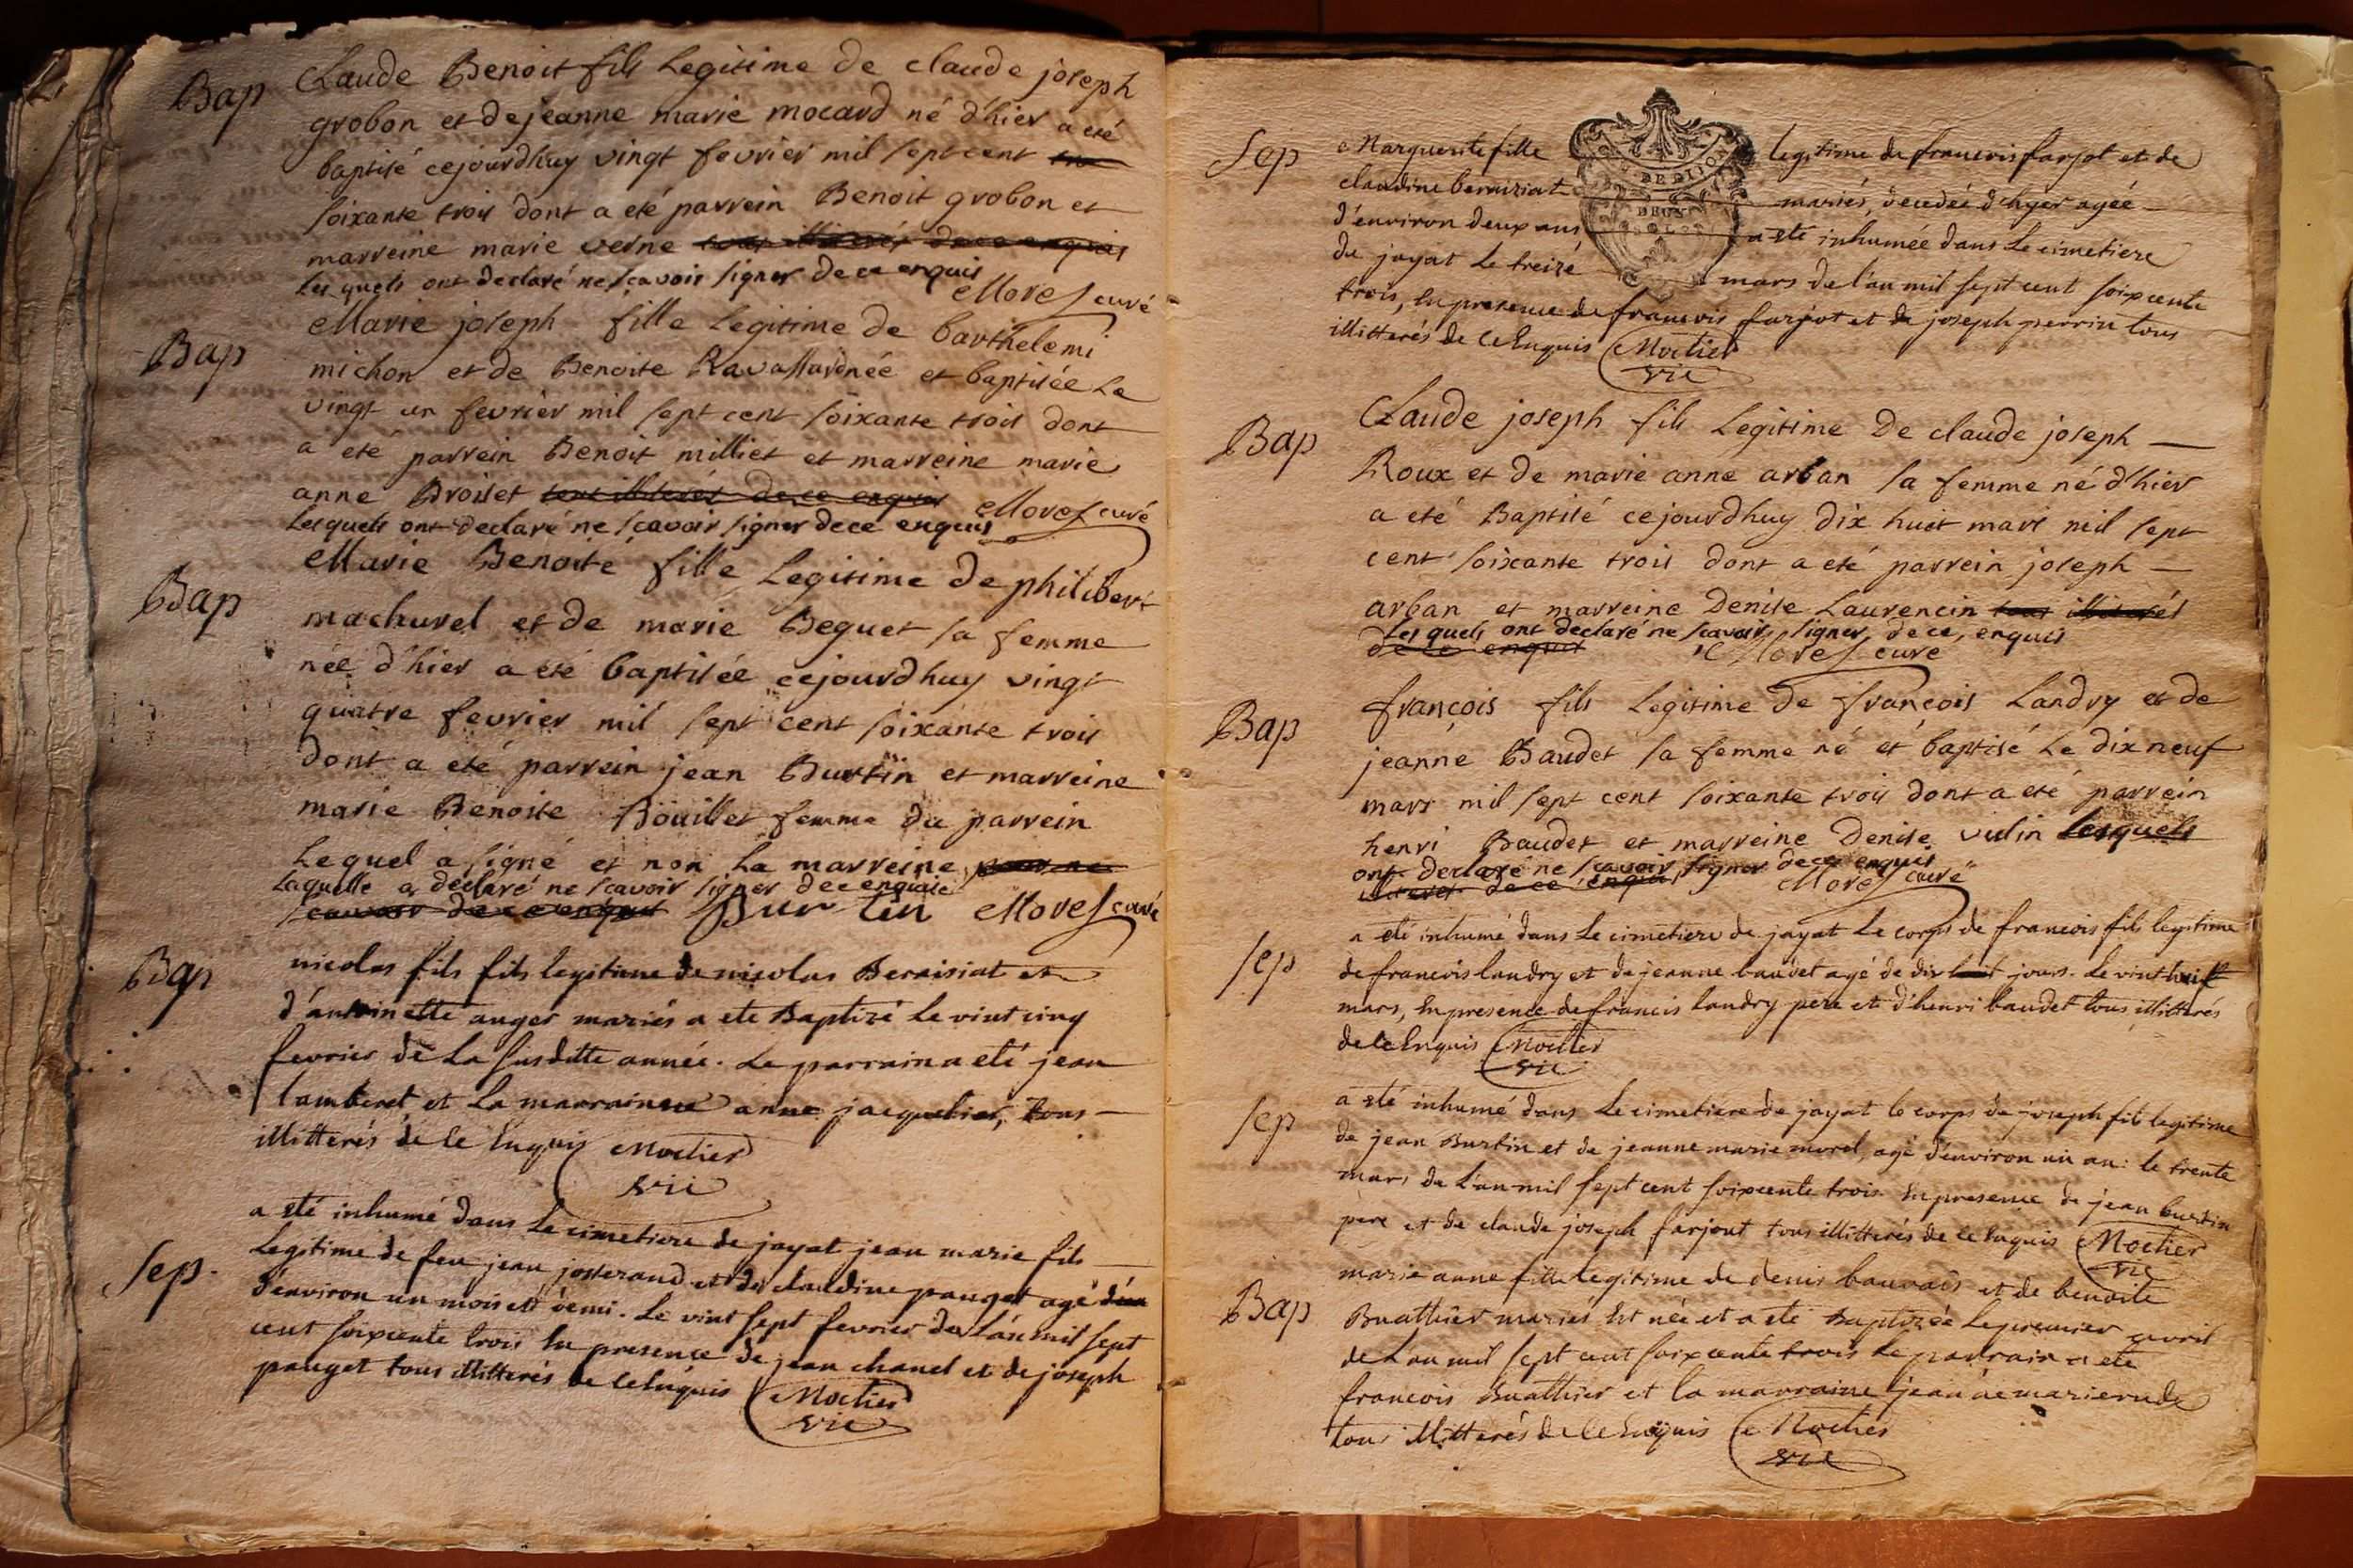 Bap Claude Benoit fils Legitime de claude joseph
grobon et de jeanne marie mocard né d'hier a eté
baptisé cejourdhuy vingt fevrier mil sept cent
soixante trois dont a eté parrein Benoit grobon et
marreine marie verne tous illiterés de ce enquis
Les quels ont declaré ne sçavoir signer de ce enquis
Morel curé
Bap Marie joseph fille Legitime de barthelemi
michon et de Benoite Ravassard née et baptisée Le
vingt un fevrier mil sept cent soixante trois dont
a eté parrein Benoit milliet et marreine marie
anne Broiset tous illiterés de ce enquis Morel curé
Lesquels ont declaré ne sçavoir signer de ce enquis
Bap Marie Benoite fille Legitime de philibert
machurel et de marie Beguet sa femme
née d'hier a eté baptisée cejourdhuy vingt
quatre fevrier mil sept cent soixante trois
dont a eté parrein jean Burtin et marreine
marie Benoite Boüillet femme du parrein
Lequel a signé et non La marreine pour ne
Laquelle a déclaré ne sçavoir signer de ce enquise
sçauvoir de ce enquis Burtin Morel curé
Bap nicolas fils fils legitime de nicolas Beraisiat et
d'antoinette auger mariés a ete Baptizé Le vint cinq
fevrier de La susditte année. Le parrain a eté jean
lamberet et La marrainne anne jacquelier, tous
illitterés de ce Enquis Moclier
vic
a eté inhumé dans Le cimetiere de jayat jean marie fils
Sep. Legitime de feu jean josserand et de claudine pauget agé d'un
d'environ un mois et demi. Le vint sept fevrier de L'an mil sept
cent soixcente trois En presence de jean chanel et de joseph
pauget tous illitterés de ce Enquis Moclier
vic
Sep Marguerite fille legitime de francois farjot et de
claudine beraiziat mariés, decedée d'hyer agée
d'environ deux ans a eté inhumée dans Le cimetiere
de jayat Le treize mars de l'an mil sept cent soixcente
trois, En presence de francois farjot et de joseph perrin tous
illitterés de ce Enquis Moclier
vic
DE DIJON
DEUX
SOLS
Bap Claude joseph fils Legitime De claude joseph
Roux et de marie anne arban sa femme né d'hier
a eté Baptisé cejourdhuy dix huit mars mil sept
cent soixante trois dont a eté parrein joseph
arban et marreine Denise Laurencin tous illiterés
Les quels ont declaré ne sçavoir signer de ce, enquis
de ce enquis Morel curé
Bap françois fils Legitime de françois Landry et de
jeanne Baudet sa femme né et baptisé Le dix neuf
mars mil sept cent soixante trois dont a eté parrein
henri Baudet et marreine Denise vulin Lesquels
ont declaré ne sçavoir signer de ce enquis
illiterés de ce enquis Morel curé
a eté inhumé dans Le cimetiere de jayat Le corps de francois fils legitime
Sep de francois landry et de jeanne baudet agé de dix huit jours. Le vint huit
mars, En presence de francois landry père et d'henri baudet tous illitterés
de ce Enquis Moclier
vic
a eté inhumé dans Le cimetiere de jayat le corps de joseph fils legitime
Sep de jean Burtin et de jeanne marie morel, agé d'environ un an: le trente
mars de L'an mil sept cent soixcente trois. En presence de jean burtin
père et de claude joseph farjout tous illitterés de ce Enquis Moclier
vic
marie anne fille legitime de denis bauvais et de benoite
Bap Buathier mariés Est née et a eté Baptizée Le premier avril
de L'an mil sept cent soixcente trois Le parrain a eté
francois Buathier et la marraine jeanne marie rude
tous illitterés de ce Enquis Moclier
vic